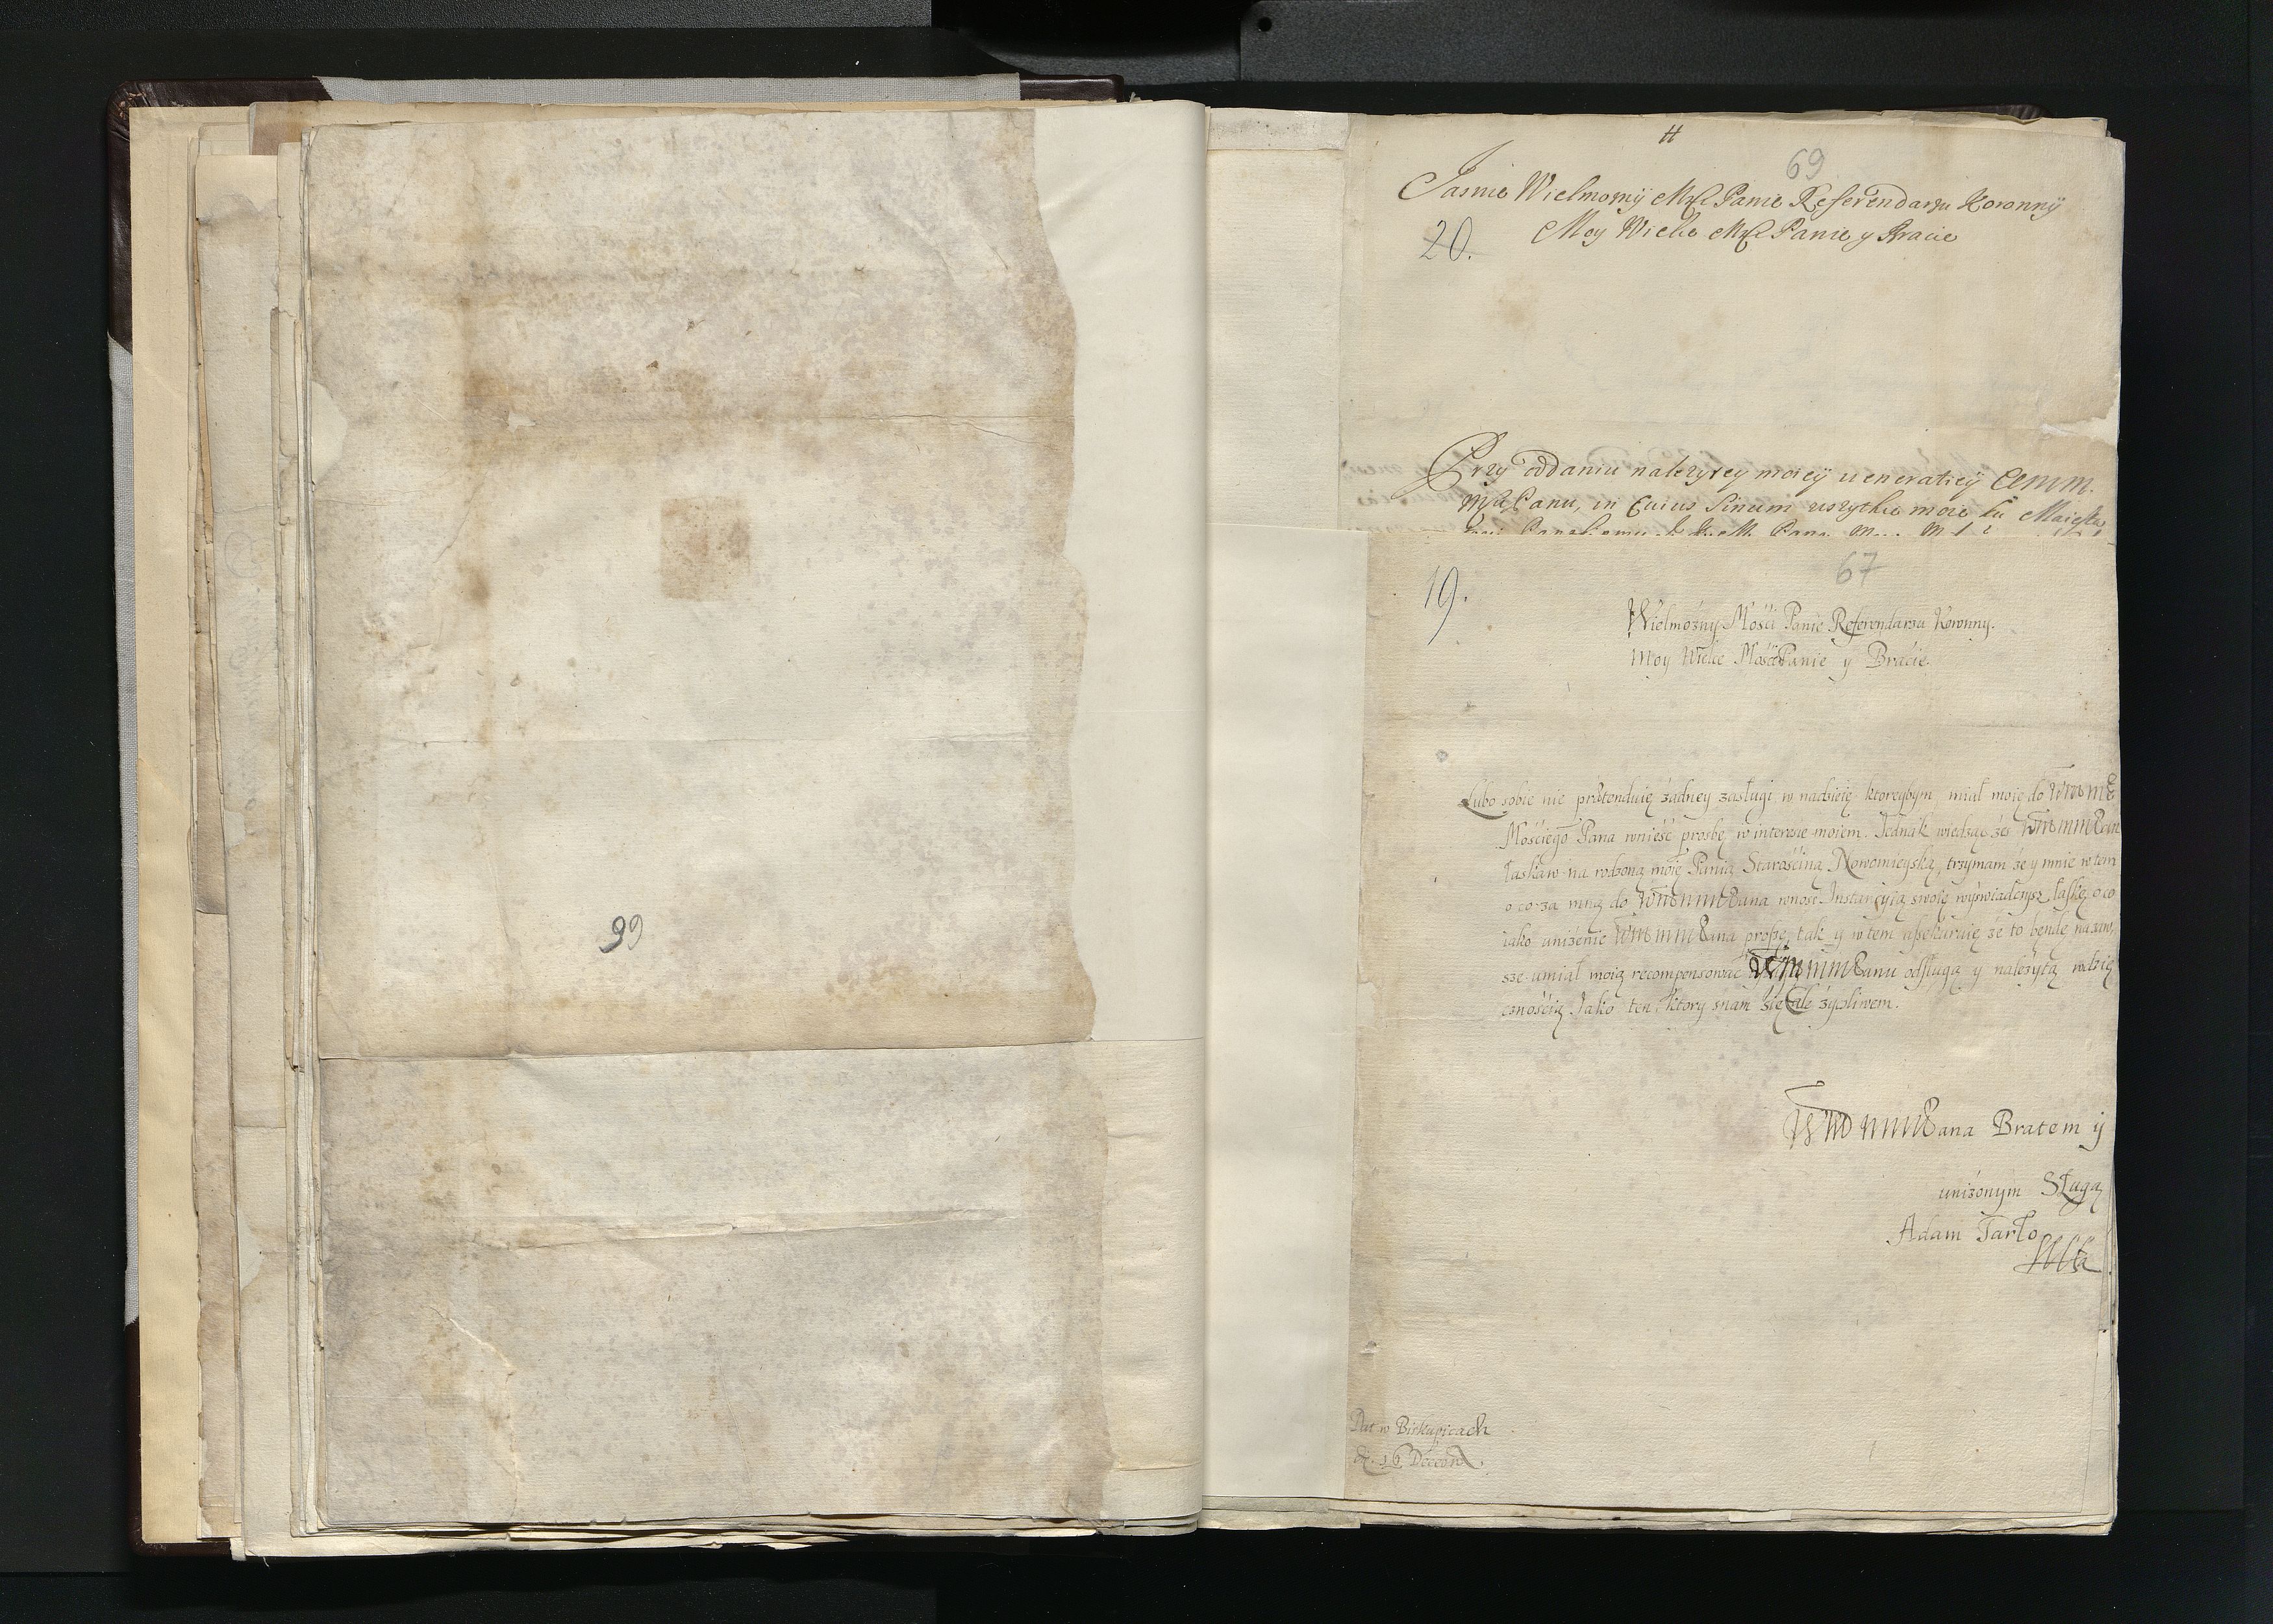 99
69
Jasnie Wielmozny Mśc Panie Referendarzu Koronny
20. Moy Wielce Mśc Panie y Bracie
Przy oddaniu nalezytey moiey veneratiey
Panu, in Cuius Sinum wszytkie moie
67
19.
Wielmożny Mośći Panie Referendarzu Koronny.
Moy Wielce MośćiPanie y Bracie.
Lubo sobie nie prætenduię żadney zasługi w nadzieię ktoreybym miał moię do
Mośćiego Pana wnieść prosbę w interesie moiem. Jednak wiedząc żeś
łaskaw na rodzoną moię Panią Starośćiną Nowomieyską, trzymam że y mnie w tem
o co za mną do WMMMPana wnośi Instancyią swoię wyświadczysz łaskę, o co
iako uniżenie WMMMPana proszę, tak y w tem assekuruię że to będę zaw,
sze umiał moią recompensować WMMMPanu odsługą y należytą wdzię
cznośćią Jako ten ktory znam się Cale życzliwem.
WMMMPana Bratem y
uniżonym Sługą
Adam Tarło
Dat w Biskupicach
d. 16 Decem